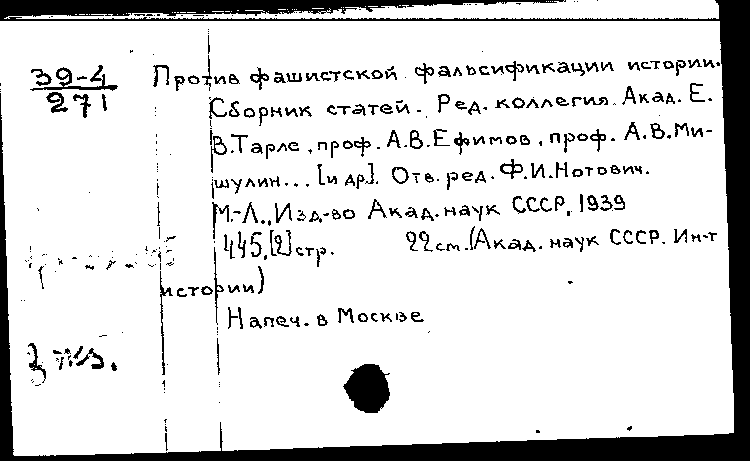 39-4
271
Против фашистской фальсификации истории.
Сборник статей. Ред. коллегия. Акад. Е.
В. Тарле, проф. А.В. Ефимов, проф. А.В. Ми-
шулин... [и др.]. Отв. ред. Ф.И. Нотович.
М.-Л., Изд-во Акад. наук СССР, 1939
445,[2] стр. 22 см. (Акад. наук СССР. Ин-т
истории)
Напеч. в Москве